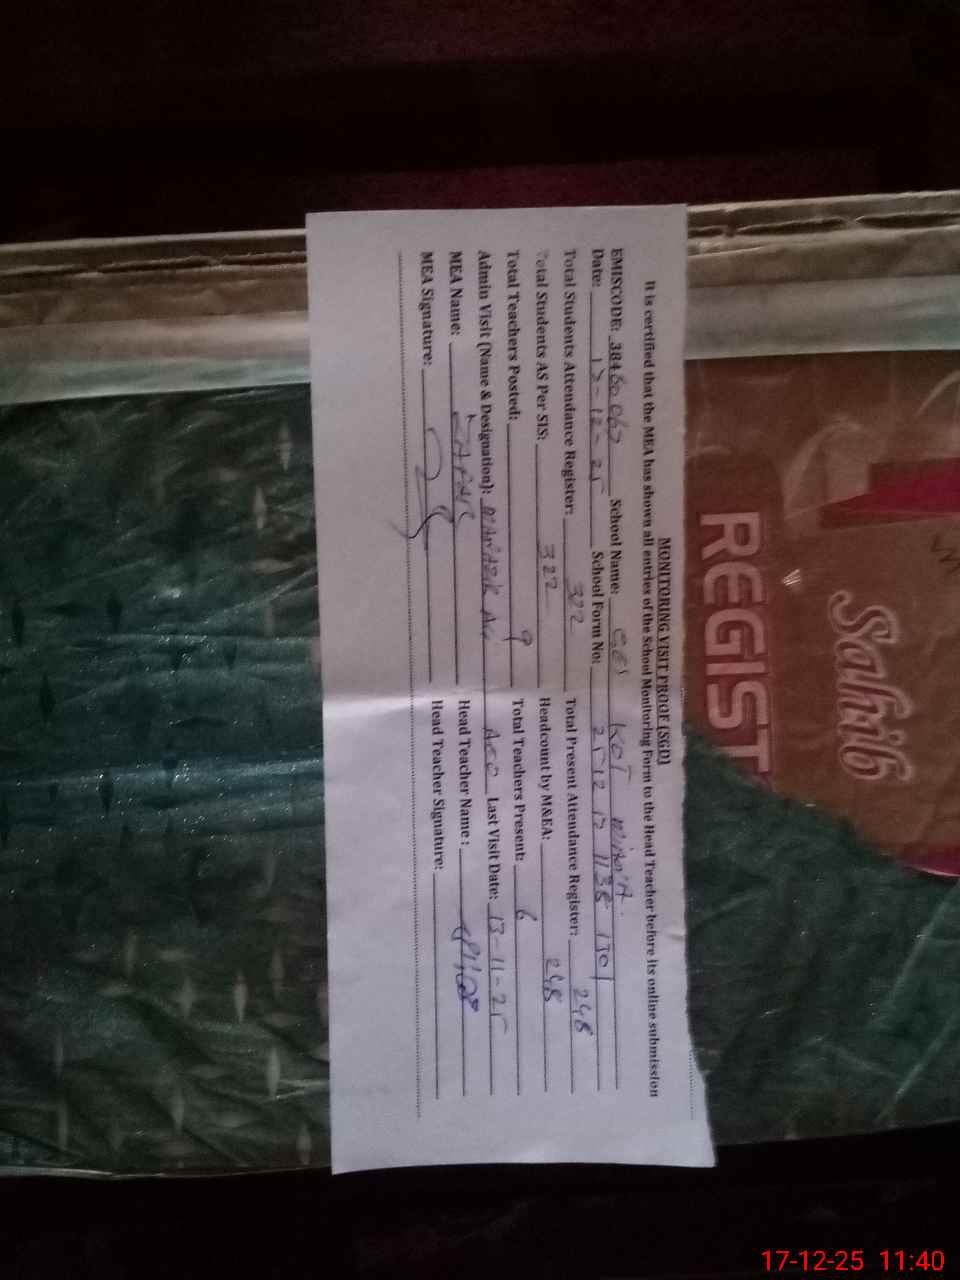 MONITORING VISIT PROOF [SGD]
It is certified that the MEA has shown all entries of the School Monitoring Form to the Head Teacher before its online submission
EMISCODE: 38460067 School Name: GES KOT
Date: 17-12-25 School Form No:
Total Students Attendance Register: 322 Total Present Attendance Register: 248
Total Students AS Per SIS: 322 Headcount by M&EA: 248
Total Teachers Posted: 9 Total Teachers Present: 6
Admin Visit (Name & Designation): AEO Last Visit Date: 13-11-25
MEA Name: Head Teacher Name:
MEA Signature: Head Teacher Signature:
Sahib
REGIST
17-12-25 11:40